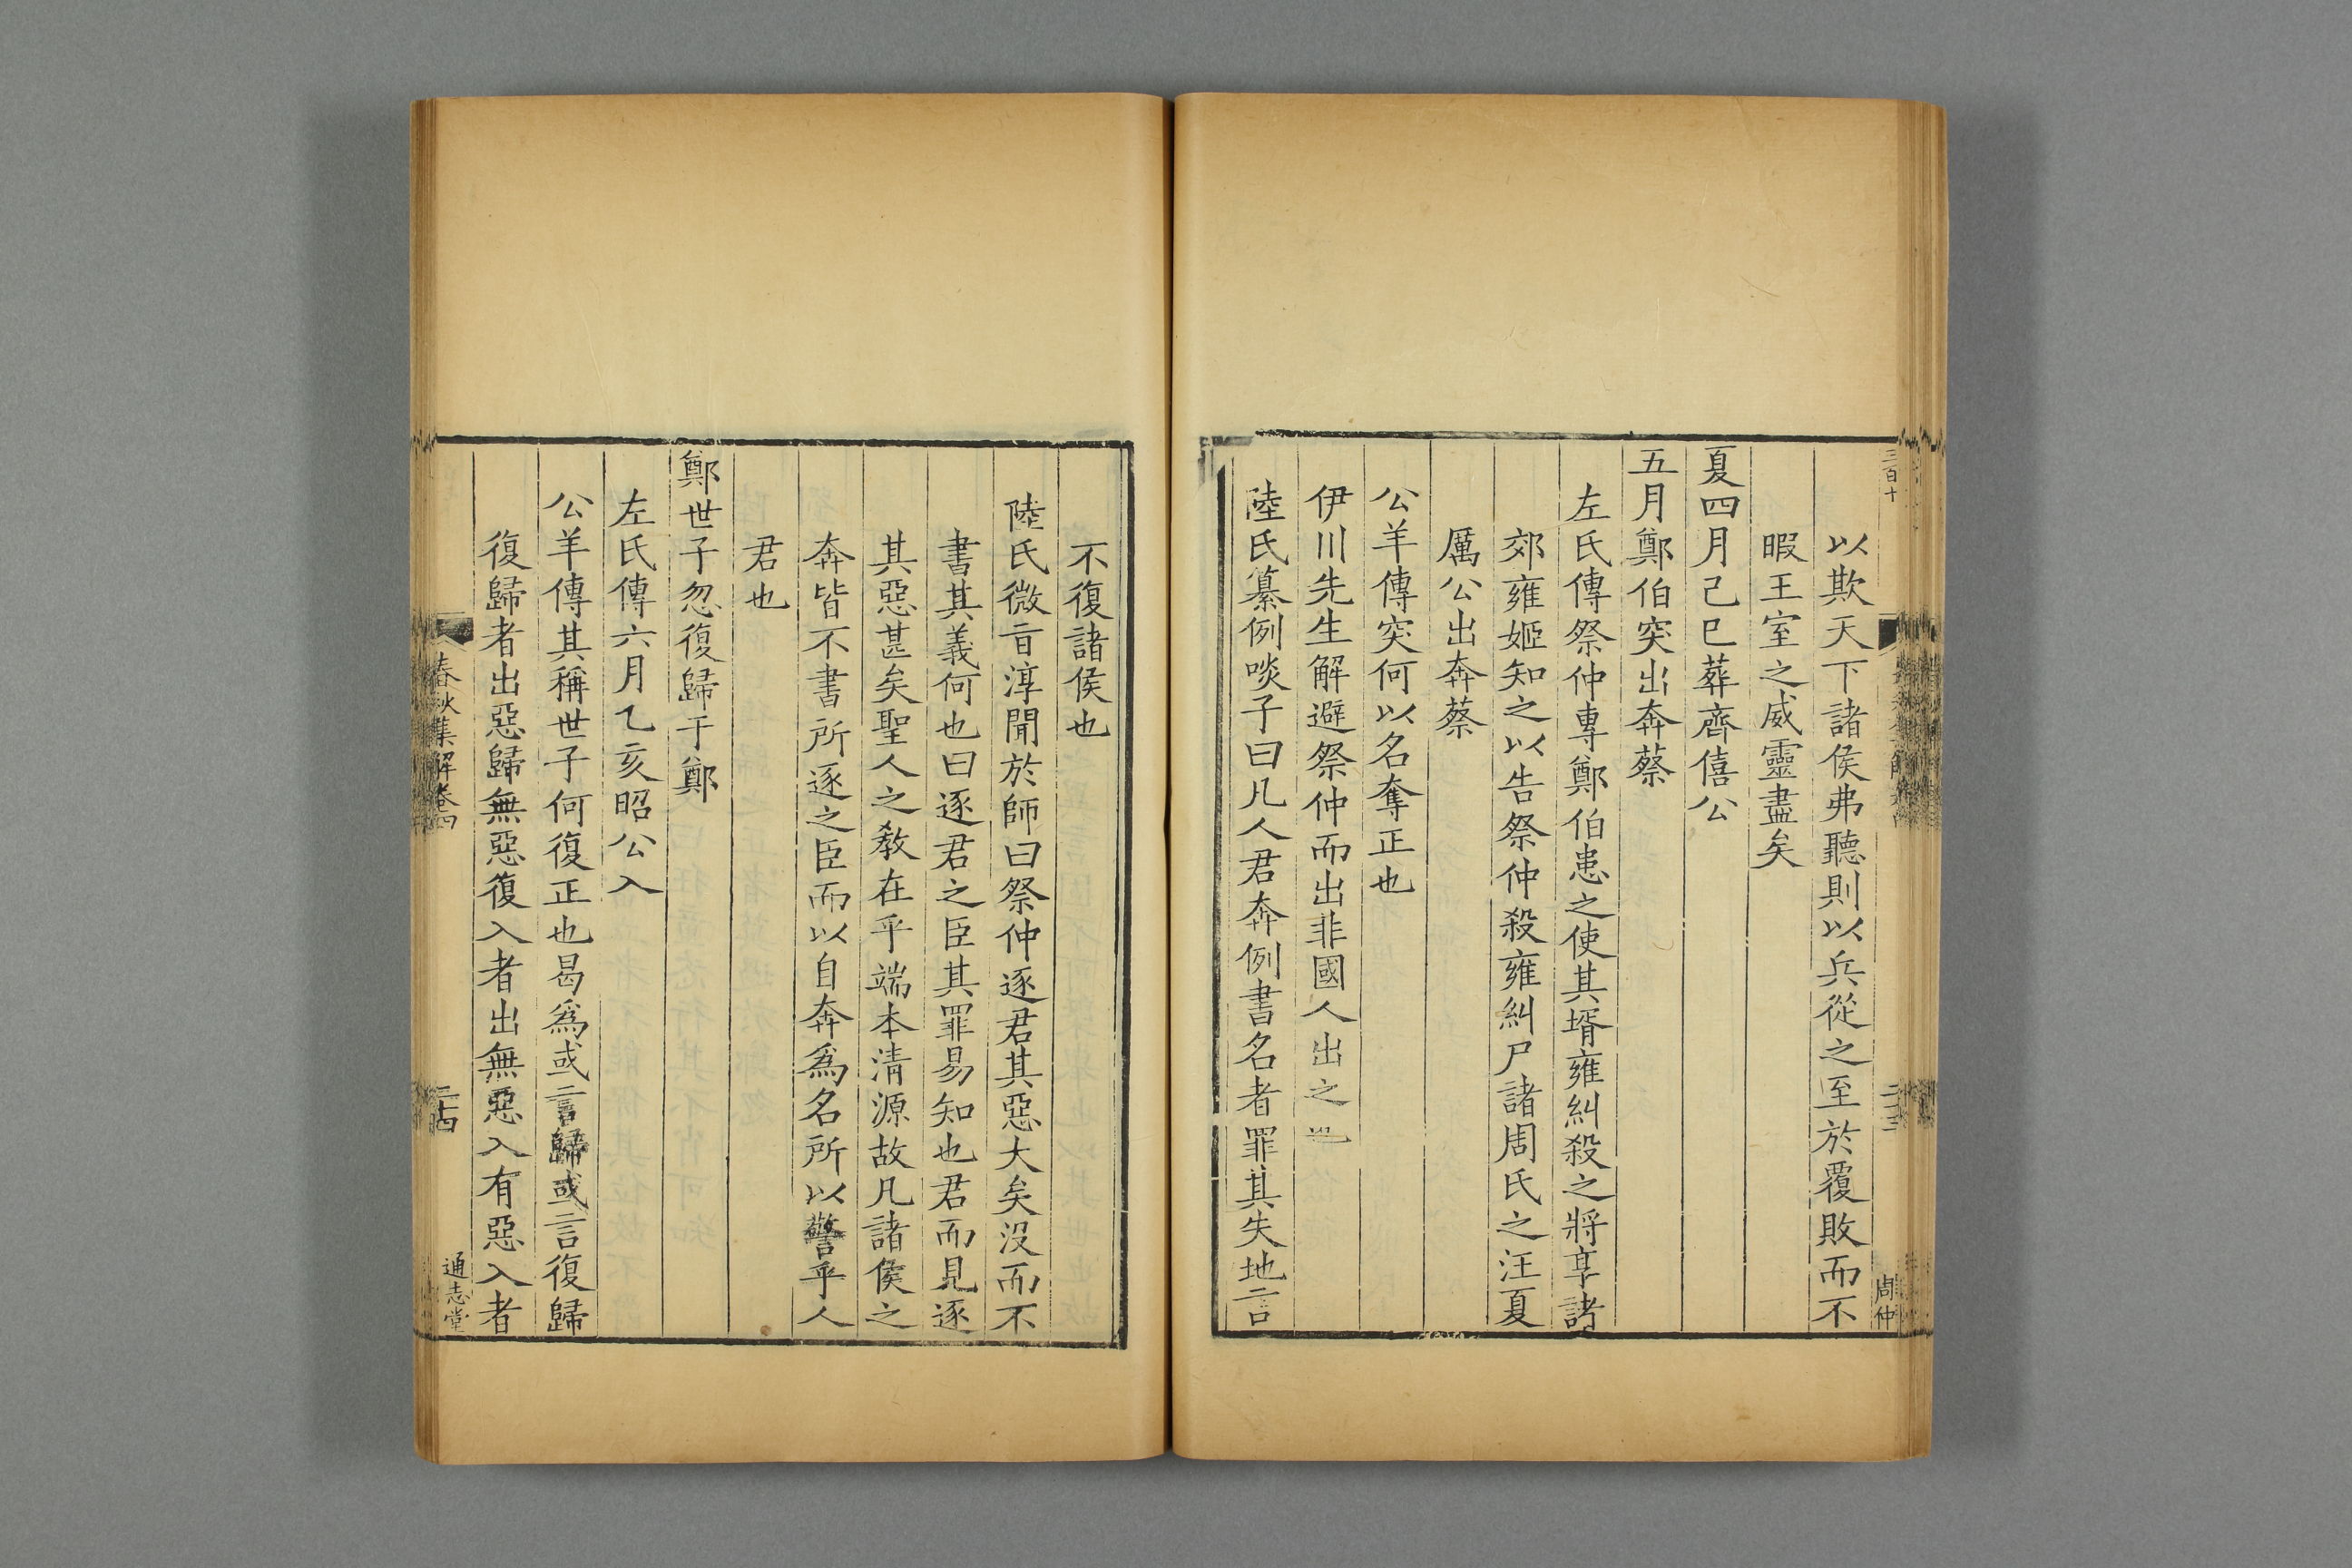 三百十
二十三
周仲
以欺天下諸侯弗聽則以兵從之至於覆敗而不
暇王室之威靈盡矣
夏四月己巳葬齊僖公
五月鄭伯突出奔蔡
左氏傳祭仲專鄭伯患之使其壻雍糾殺之將享諸
郊雍姬知之以告祭仲殺雍糾尸諸周氏之汪夏
厲公出奔蔡
公羊傳突何以名奪正也
伊川先生解避祭仲而出非國人出之也
陸氏纂例啖子曰凡人君奔例書名者罪其失地言
不復諸侯也
陸氏微旨淳聞於師曰祭仲逐君其惡大矣沒而不
書其義何也曰逐君之臣其罪易知也君而見逐
其惡甚矣聖人之敎在乎端本清源故凡諸侯之
奔皆不書所逐之臣而以自奔爲名所以警乎人
君也
鄭世子忽復歸于鄭
左氏傳六月乙亥昭公入
公羊傳其稱世子何復正也曷爲或言歸或言復歸
復歸者出惡歸無惡復入者出無惡入有惡入者
春秋集解卷四
二十四
通志堂